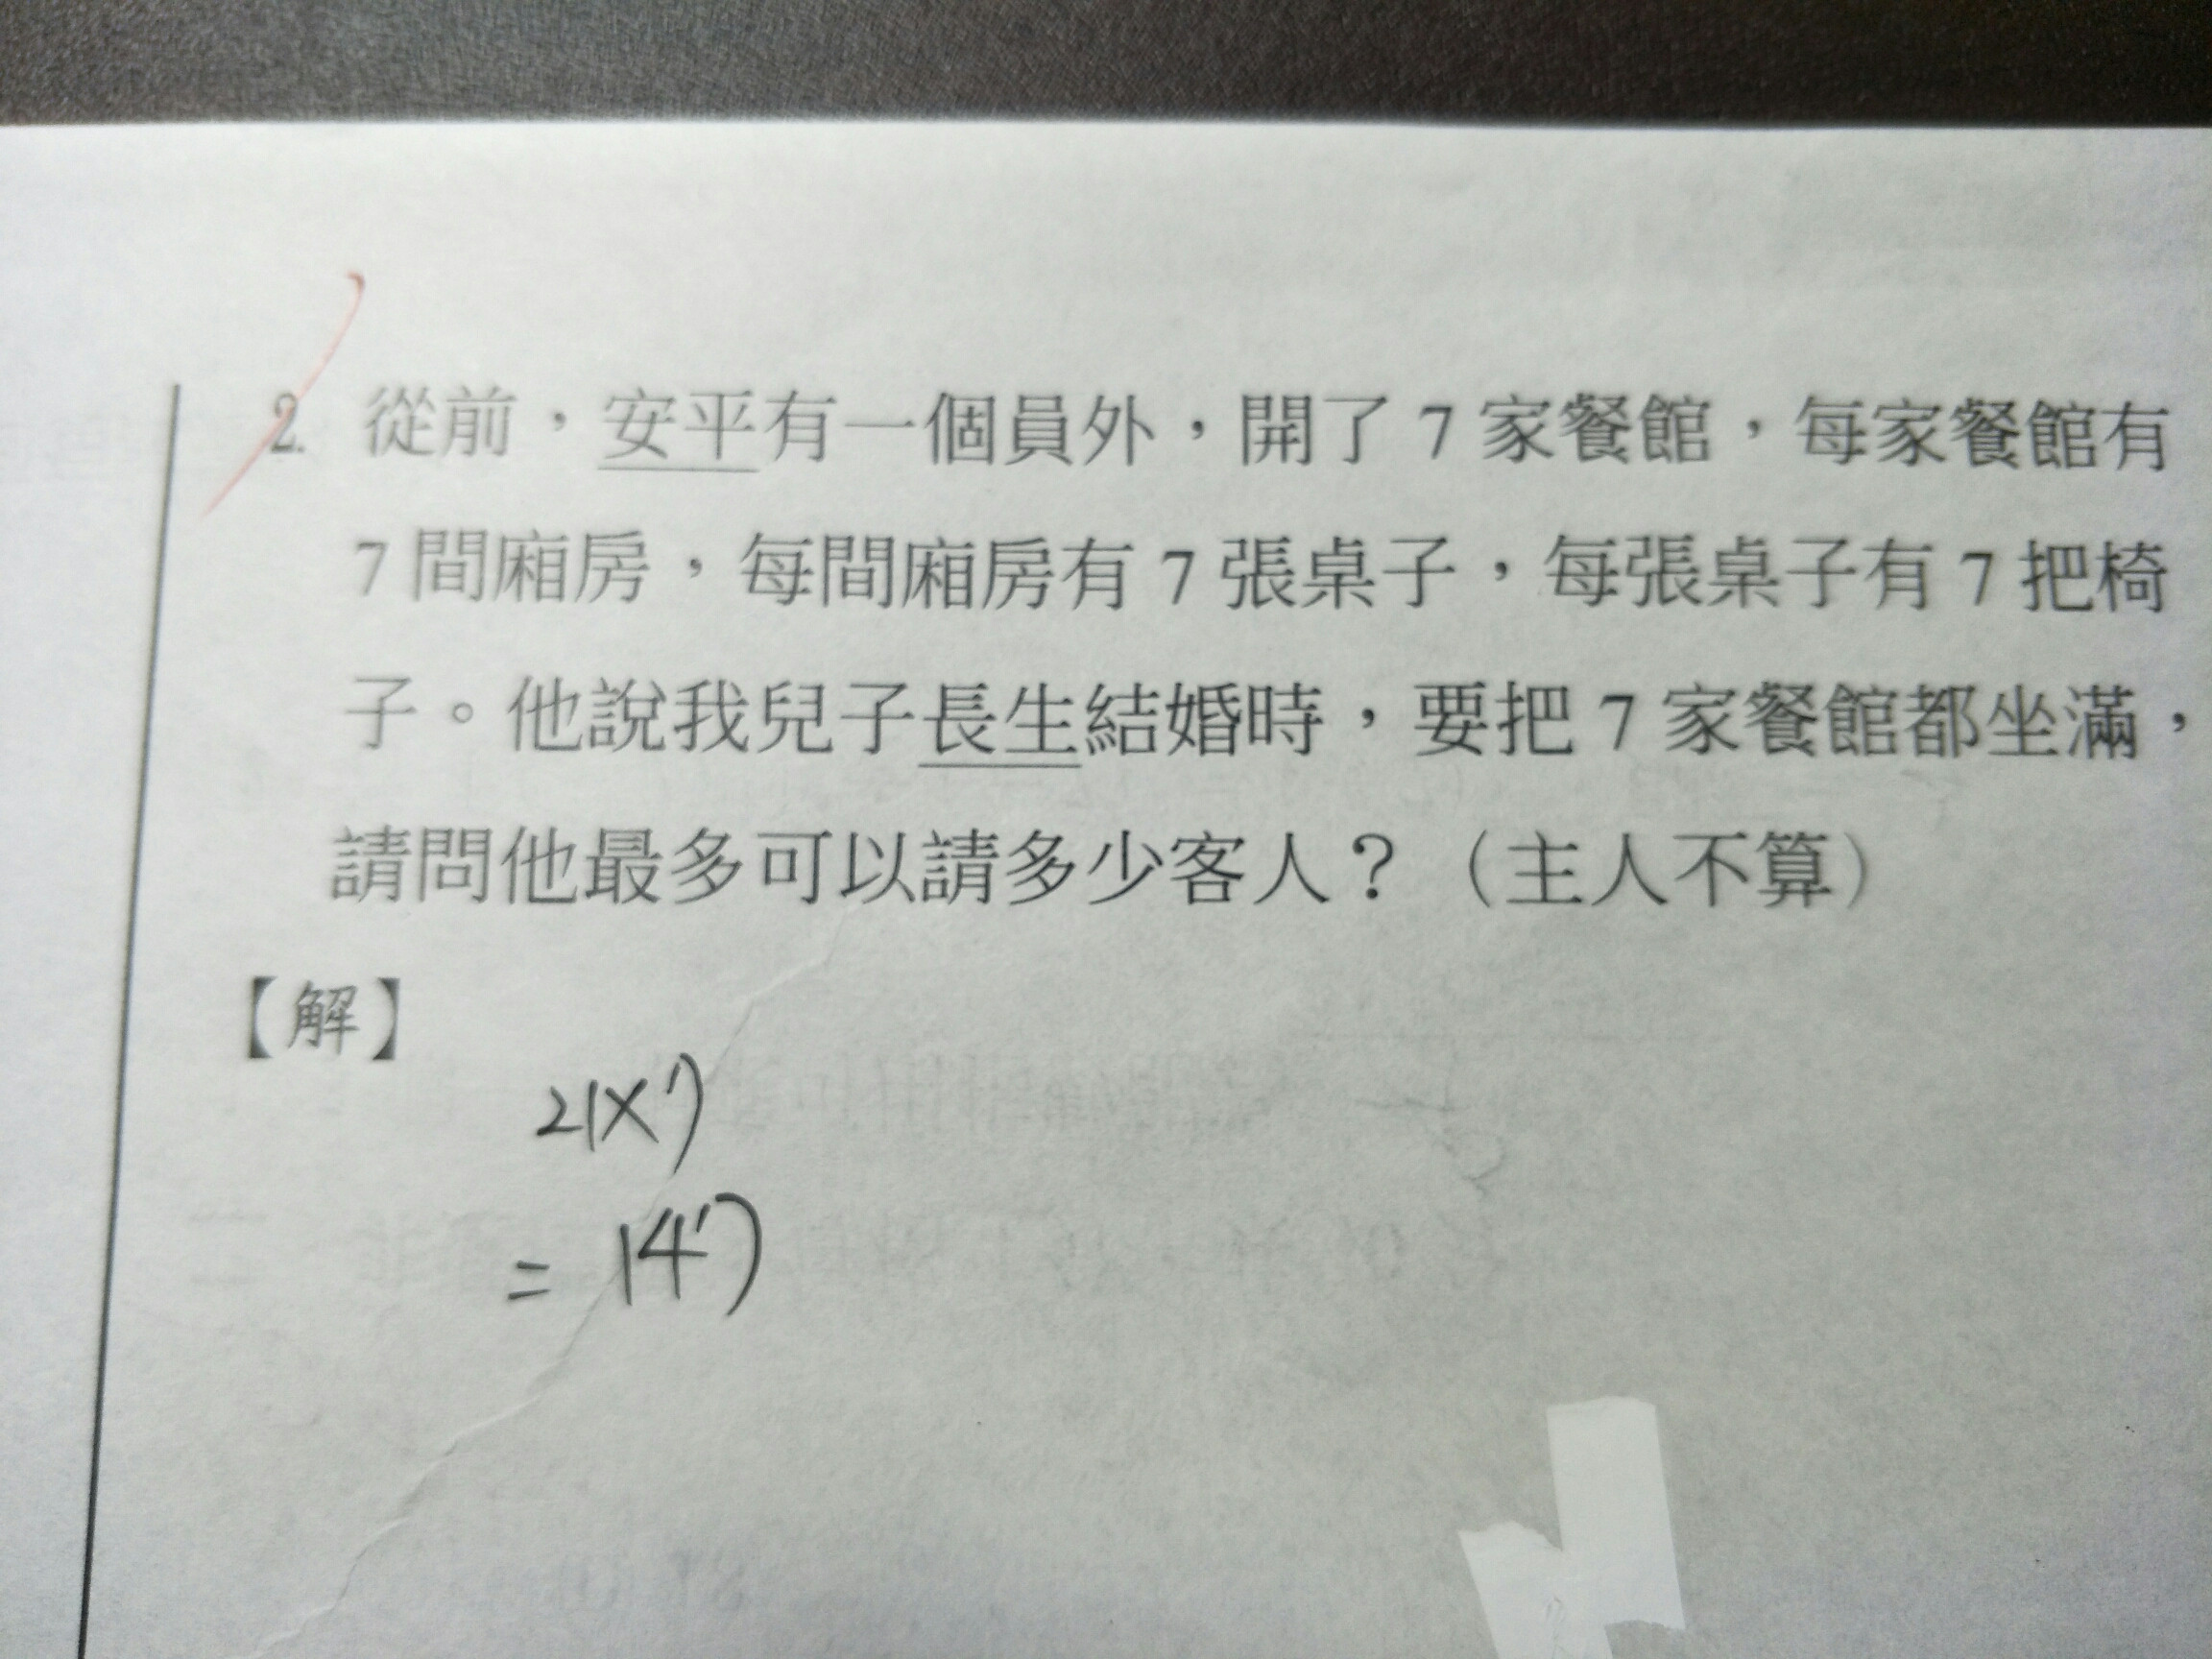 2. 從前，安平有一個員外，開了 7 家餐館，每家餐館有
7 間廂房，每間廂房有 7 張桌子，每張桌子有 7 把椅
子。他說我兒子長生結婚時，要把 7 家餐館都坐滿，
請問他最多可以請多少客人？（主人不算）
【解】
21×7
= 147